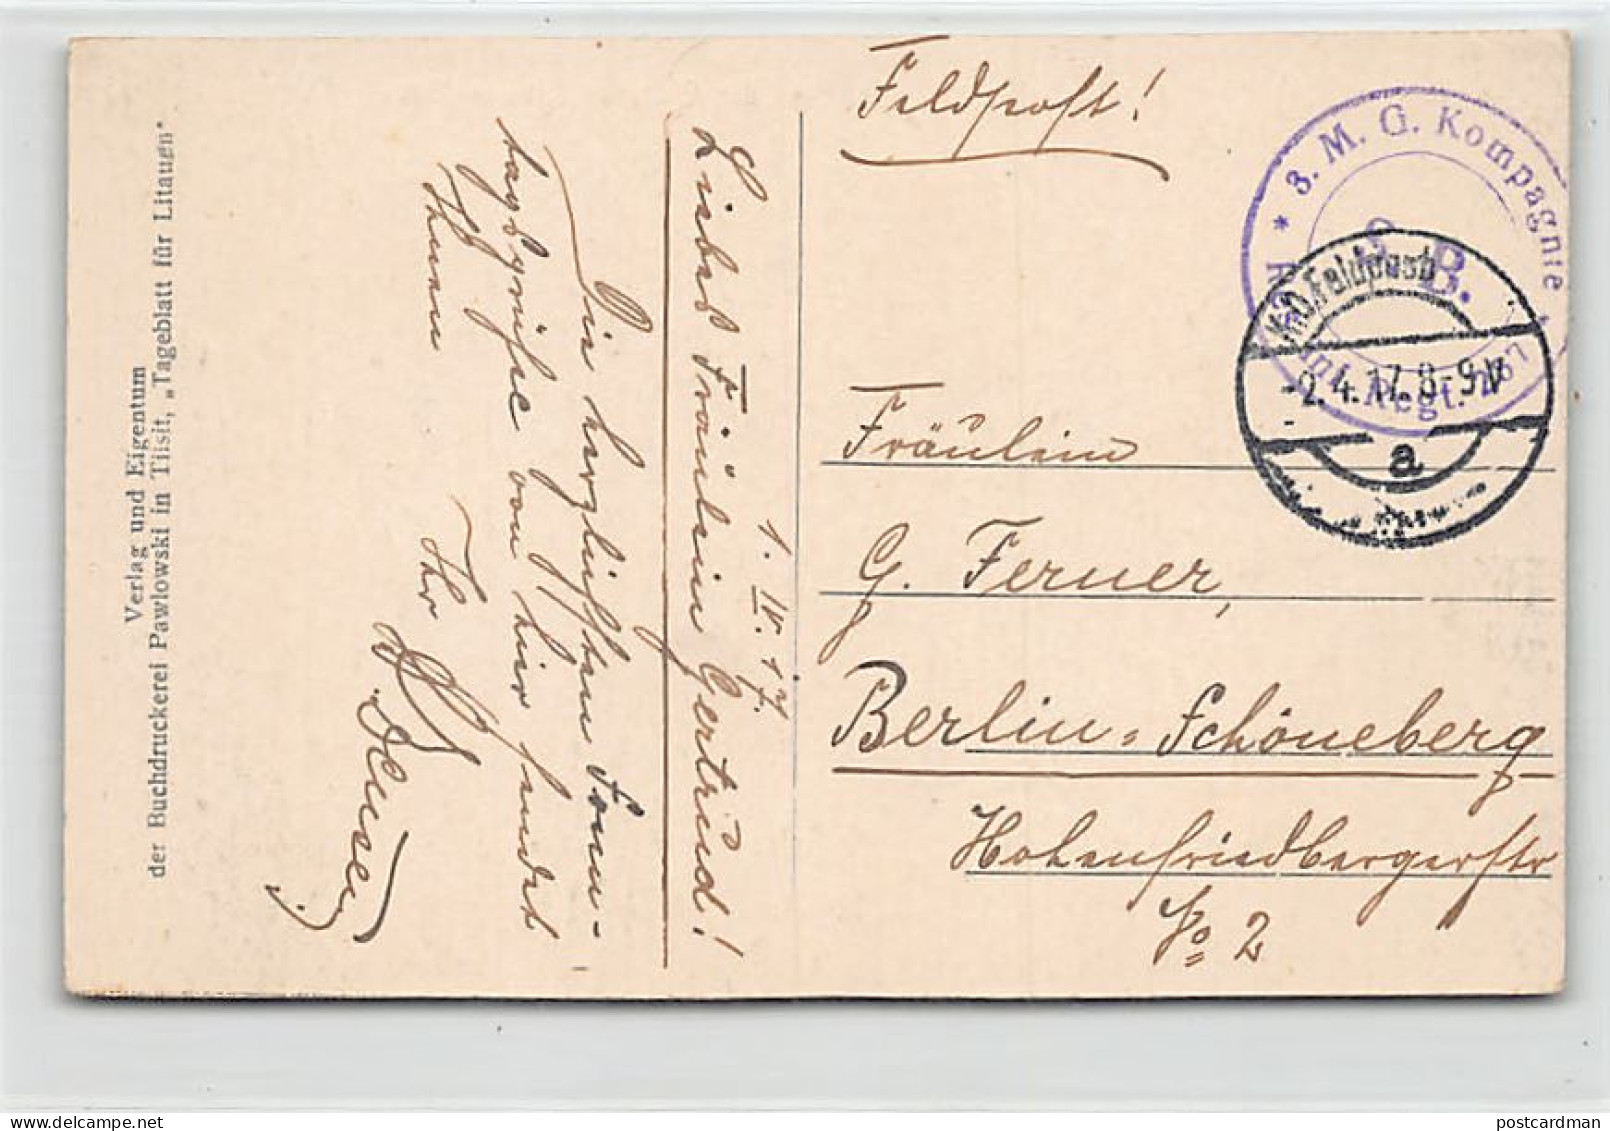 Feldpost!
* 3. M. G. Kompagnie *
S. B.
Res. Inf. Regt. 267
K.D. Feldpost
-2.4.17. 8-9 V
a
Fräulein
G. Ferner,
Berlin-Schöneberg
Hohenfriedbergerstr
No 2
1. IV. 17.
Liebes Fräulein Gertrud!
Die herzlichsten Sonn-
tagsgrüße von hier sendet
Ihnen Ihr
Verlag und Eigentum
der Buchdruckerei Pawlowski in Tilsit, „Tageblatt für Litauen"
delcampe.net
postcardman